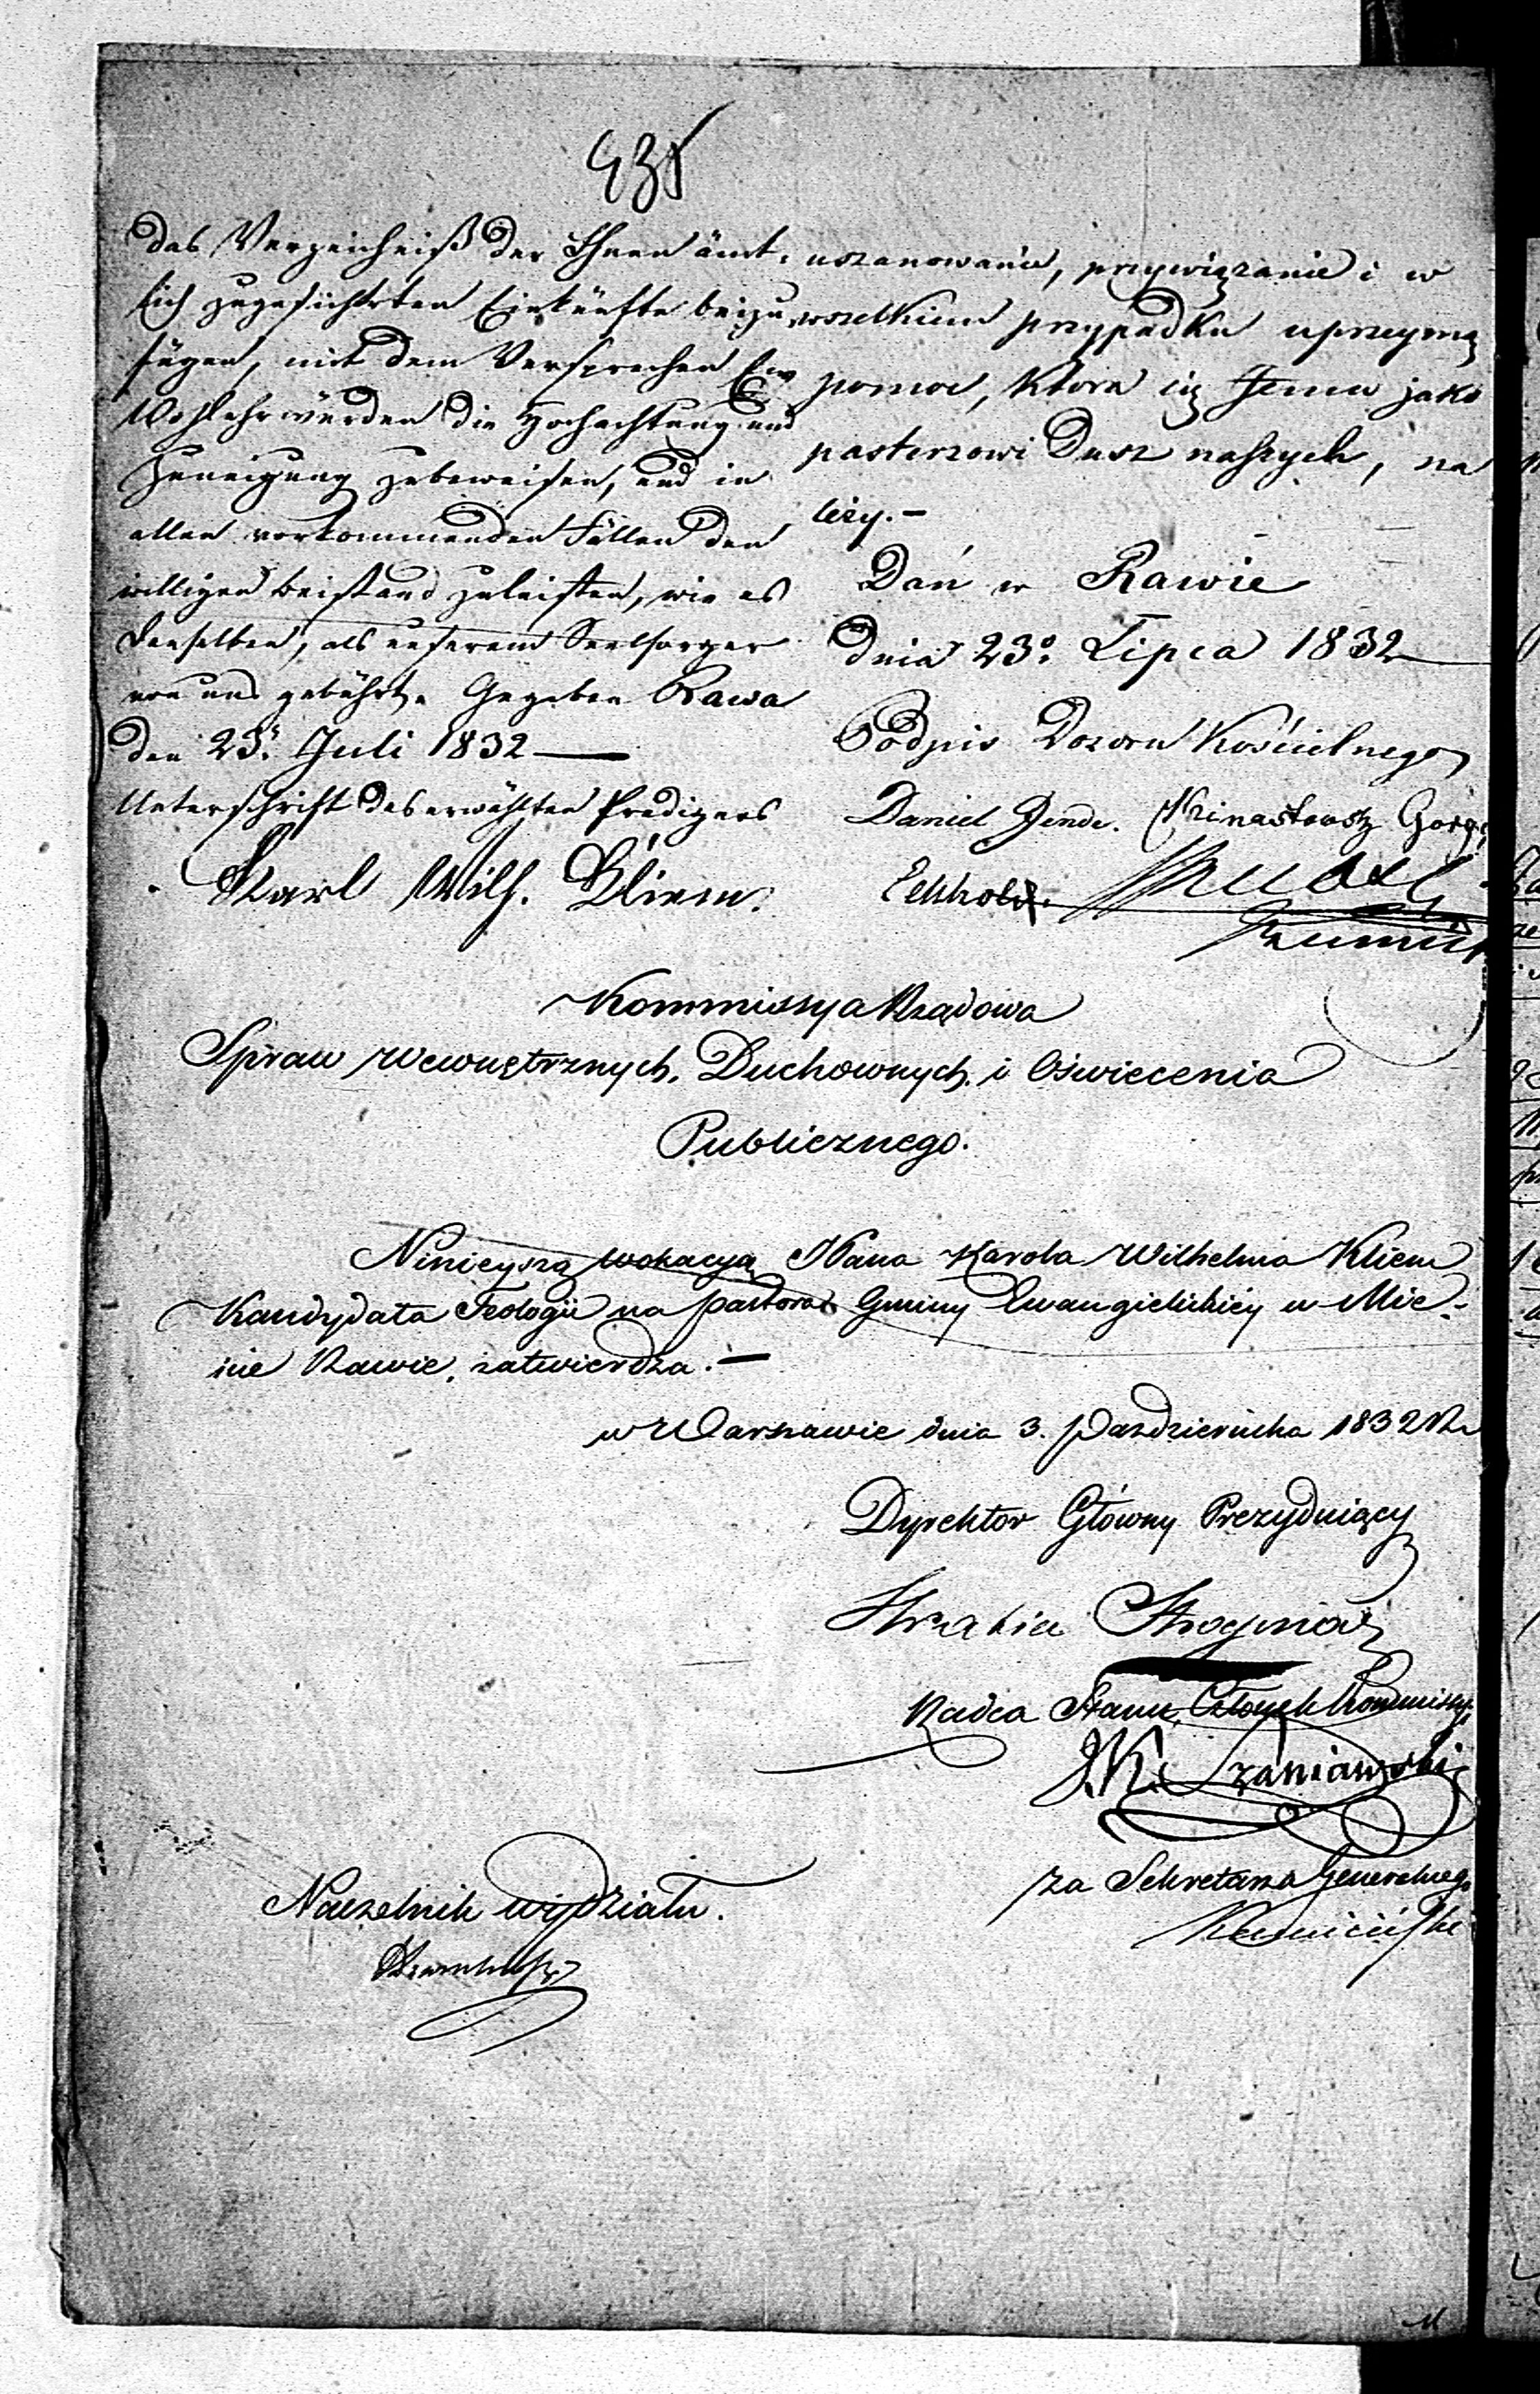 435
das Verzeichniß der Ihnen ämt-
lich zugesicherten Einkünfte beizu
fügen, mit dem Versprechen Ew
Wohlehrwürden die Hochachtung und
Zuneigung zubeweisen, und in
allen vorkommenden Fällen den
willigen Beistand zuleisten, wie es
denselben, als unserem Seelsorger
von uns gebührt. Gegeben Rawa
den 23. Juli 1832
Unterschrift des erwählten Predigers
Karl Wilh. Kliem.
uszanowanie, przywiązanie i w
wszelkiem przypadku uprzeymą
pomoc, która się Jemu jako
pasterzowi Dusz naszych, na
leży.-
Dań w Rawie
dnia 23o. Lipca 1832
Podpis Dozoru Kościelnego
Daniel Jende.
Kommissya Rządowa
Spraw Wewnętrznych, Duchownych i Oświecenia
Publicznego.
Ninieyszą wokacyą Pana Karola Wilhelma Kliem
Kandydata Teologii na pastora Gminy Ewangelickiéy w Mie-
ście Rawie, zatwierdza.-
w Warszawie dnia 3. Października 1832 R.
Dyrektor Główny Prezyduiący
Radca Stanu, Członek Kommissyi
J. K. Szaniawski
za Sekretarza Generalnego
Naczelnik wydziału.